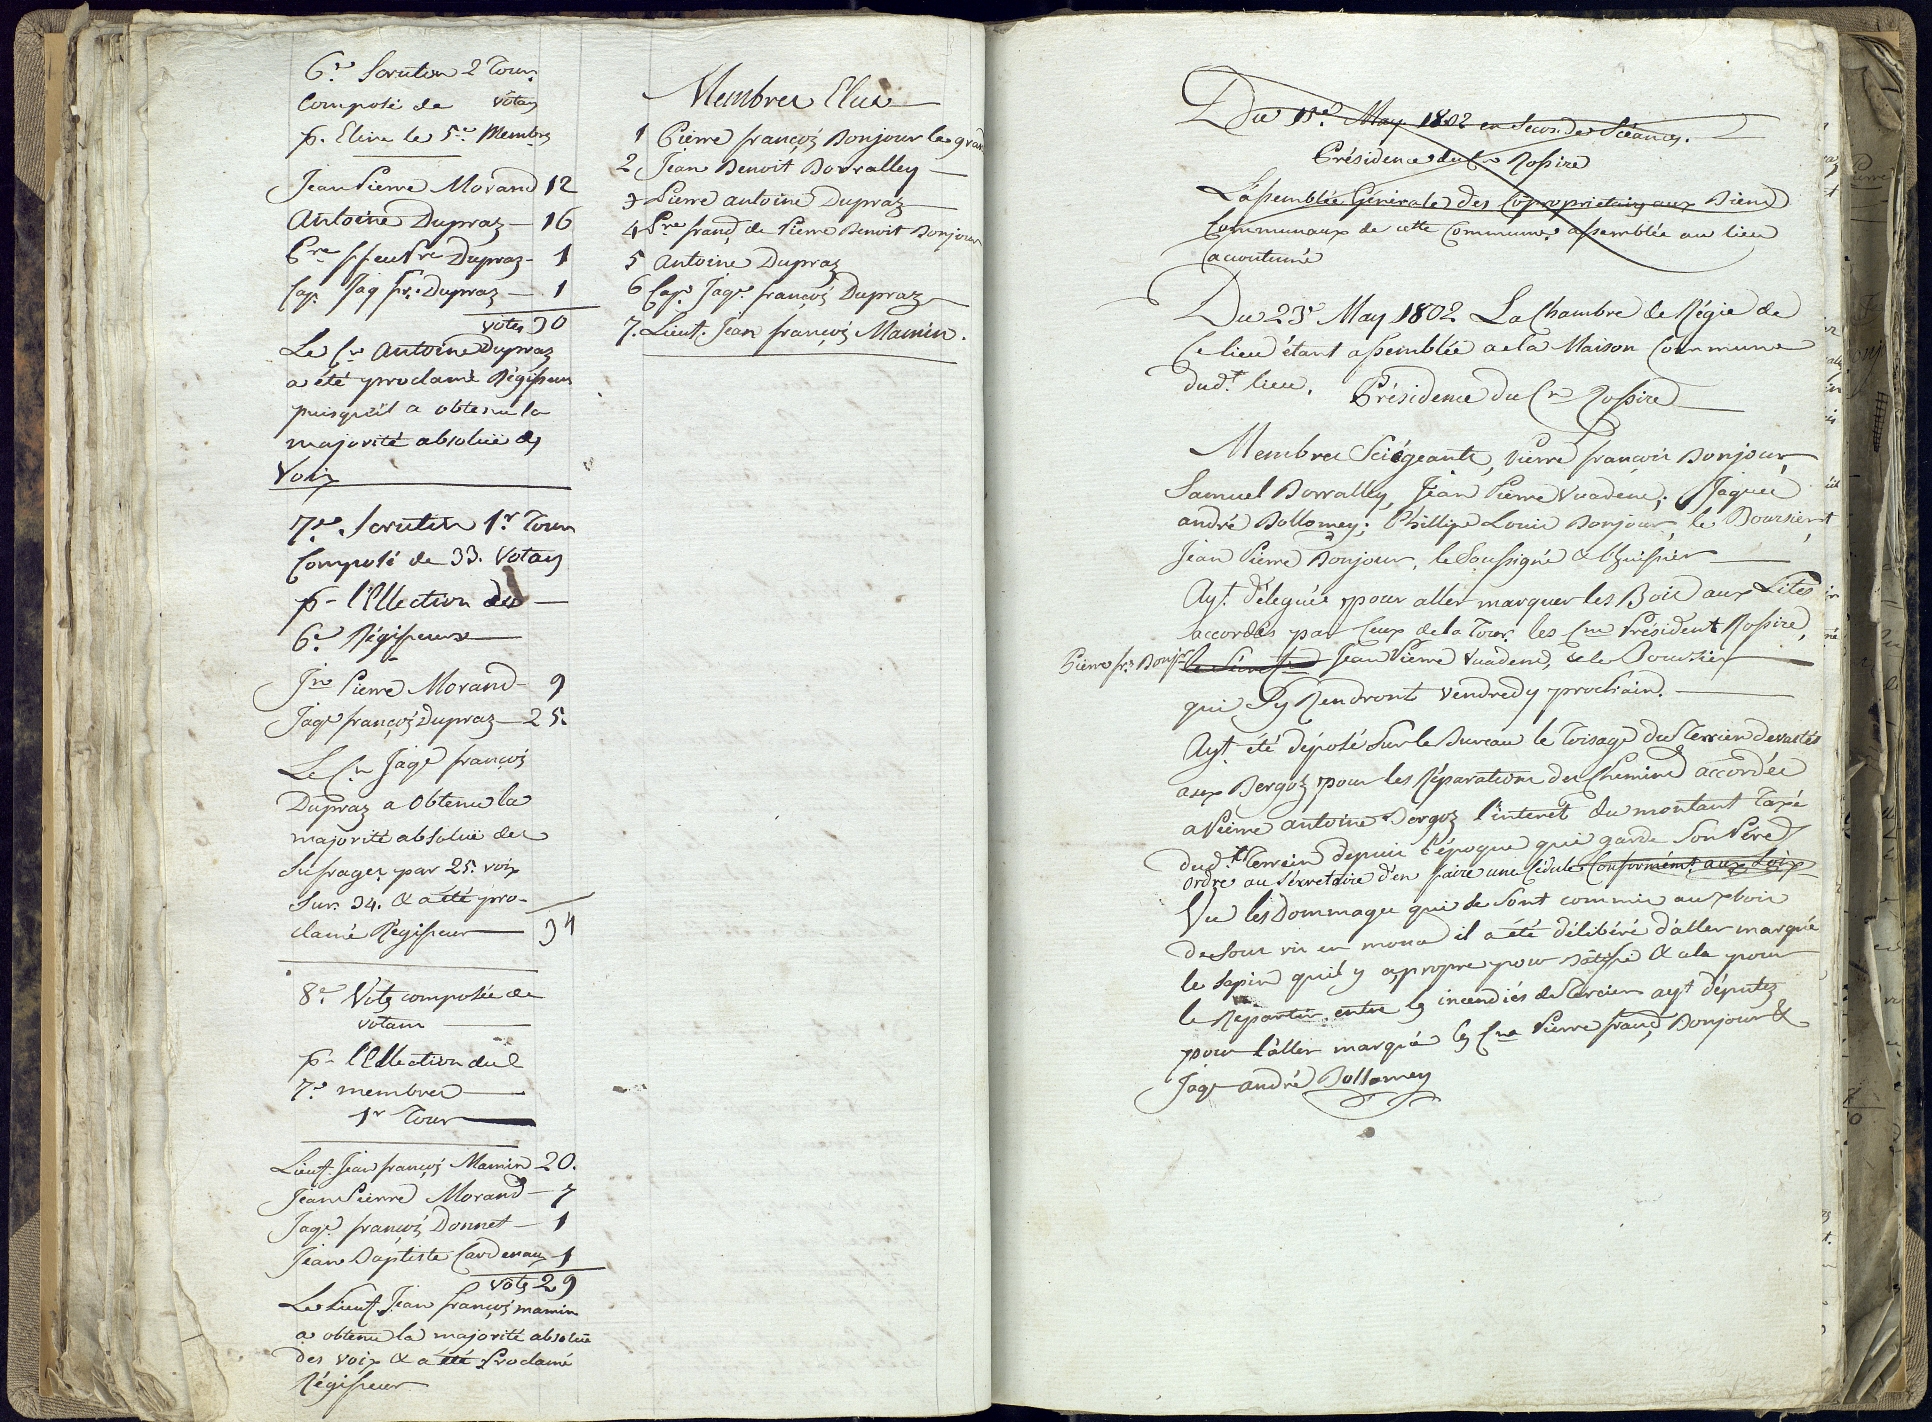 6.e Scrutin 2 Tour
Composé de votans
p. Elire le 5.e Membre
Jean Pierre Morand 12
Antoine Dupraz — 16
Pre Dupraz — 1
Cap. Jaq fr. Dupraz — 1
votes 30
Le Cn Antoine Dupraz
a été proclamé Régisseur
puisqu'il a obtenu la
majorité absolüe des
Voix
7.e Scrutin 1.r Tour
Composé de 33. Votans
p.r l'Ellection du —
6.e Régisseur
Jn Pierre Morand — 9
Jaqe françois Dupraz — 25.
Le Cn Jaqe françois
Dupraz a Obtenu la
majorité absolüe des
Sufrages par 25. voix
Sur. 34. & a été pro-
clamé Régisseur — 34
8.e Vote composée de
votans —
p.r l'Ellection du
7.e membre —
1r Tour —
Lieut. Jean françois Mamin 20.
Jean Pierre Morand — 7
Jaqe. françois Donnet — 1
Jean Baptiste Cardenaux 1
Vots 29
Le Lieut. Jean françois mamin
a obtenu la majorité absolüe
des voix & a été Proclamé
Régisseur
Membres Elus
1 Pierre françois Bonjour le grand
2 Jean Benoit Borralley —
3 Pierre antoine Dupraz —
4 Pre franç. de Pierre Benoit Bonjour
5 Antoine Dupraz
6 Cap.e Jaqe. françois Dupraz
7. Lieut. Jean françois Mamin.
Du 15e May 1802 en Seconde Séance.
Présidence du Cn Rossire
L'assemblée Générale des Copropriétaires aux Biens
Communaux de cette Commune assemblée au lieu
accoutumé
Du 23e May 1802 La Chambre de Régie de
Ce lieu étant assemblée a la Maison Commune
dud.t lieu. Présidence du Cn Rossire
Membres Sciégeants, Pierre françois Bonjour,
Samuel Borralley, Jean Pierre Vuadens; Jaques
andré Dollomey; Phillipe Louis Bonjour, le Boursier,
Jean Pierre Bonjour, le Soussigné & l'huissier —
Ayt. délegués pour aller marquer les Bois aux Lites
accordés par Ceux de la Tour, les Cns Président Rossire,
Pierre frs Bonjr. Jean Pierre Vuadens, & le Boursier
qui S'y Rendront vendredy prochain. —
Ayt. été déposé Sur le Bureau le Toisage du Terrein devastés
aux Bergoz pour les Réparations des Chemins accordés
a Pierre antoine Bergoz l'interêt du montant Taxé
dud.t Terrein depuis l'époque qui garde Son Père
ordre au Sécretaire d'en faire une Cédule Conformémt. aux Loix
Vu les Dommages qui Se Sont commis aux bois
de sous vis en mona il a été délibéré d'aller marqué
le Sapin quil y a propre pour Batisse & cela pour
le Repartir entre les incendiés de Tercier ayt députés
pour l'aller marqué les Cns Pierre franç. Bonjour &
Jaqe andré Dollomey